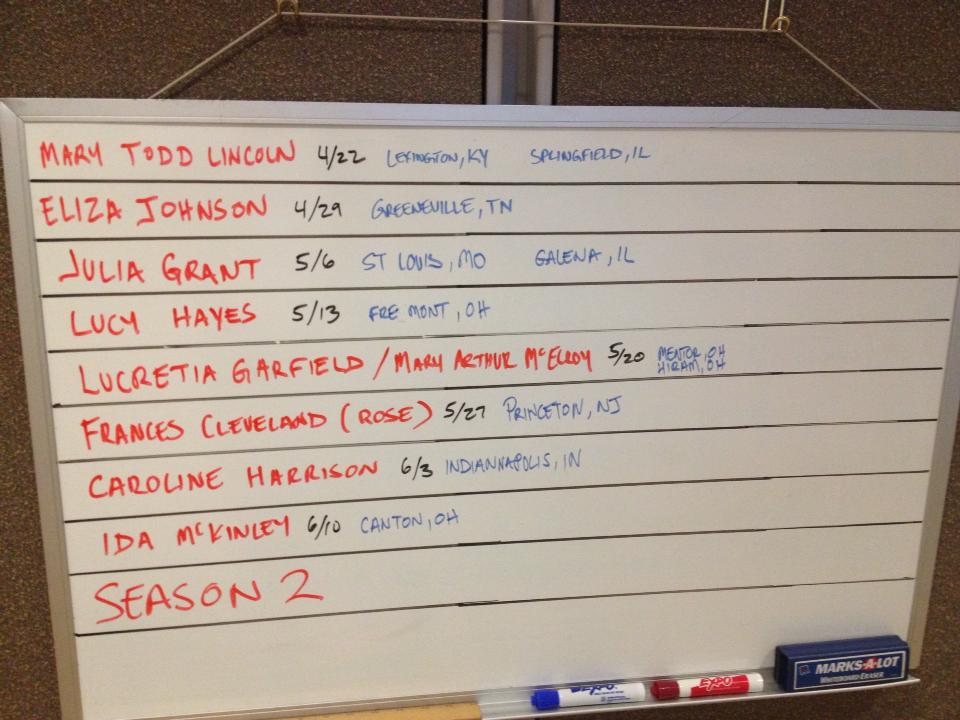 MARY TODD LINCOLN 4/22 LEXINGTON, KY SPRINGFIELD, IL
ELIZA JOHNSON 4/29 GREENEVILLE, TN
JULIA GRANT 5/6 ST LOUIS, MO GALENA, IL
LUCY HAYES 5/13 FREMONT, OH
LUCRETIA GARFIELD / MARY ARTHUR McELROY 5/20 MENTOR, OH
HIRAM, OH
FRANCES CLEVELAND (ROSE) 5/27 PRINCETON, NJ
CAROLINE HARRISON 6/3 INDIANNAPOLIS, IN
IDA McKINLEY 6/10 CANTON, OH
SEASON 2
MARKS-A-LOT
WHITEBOARD ERASER
EXPO EXPO